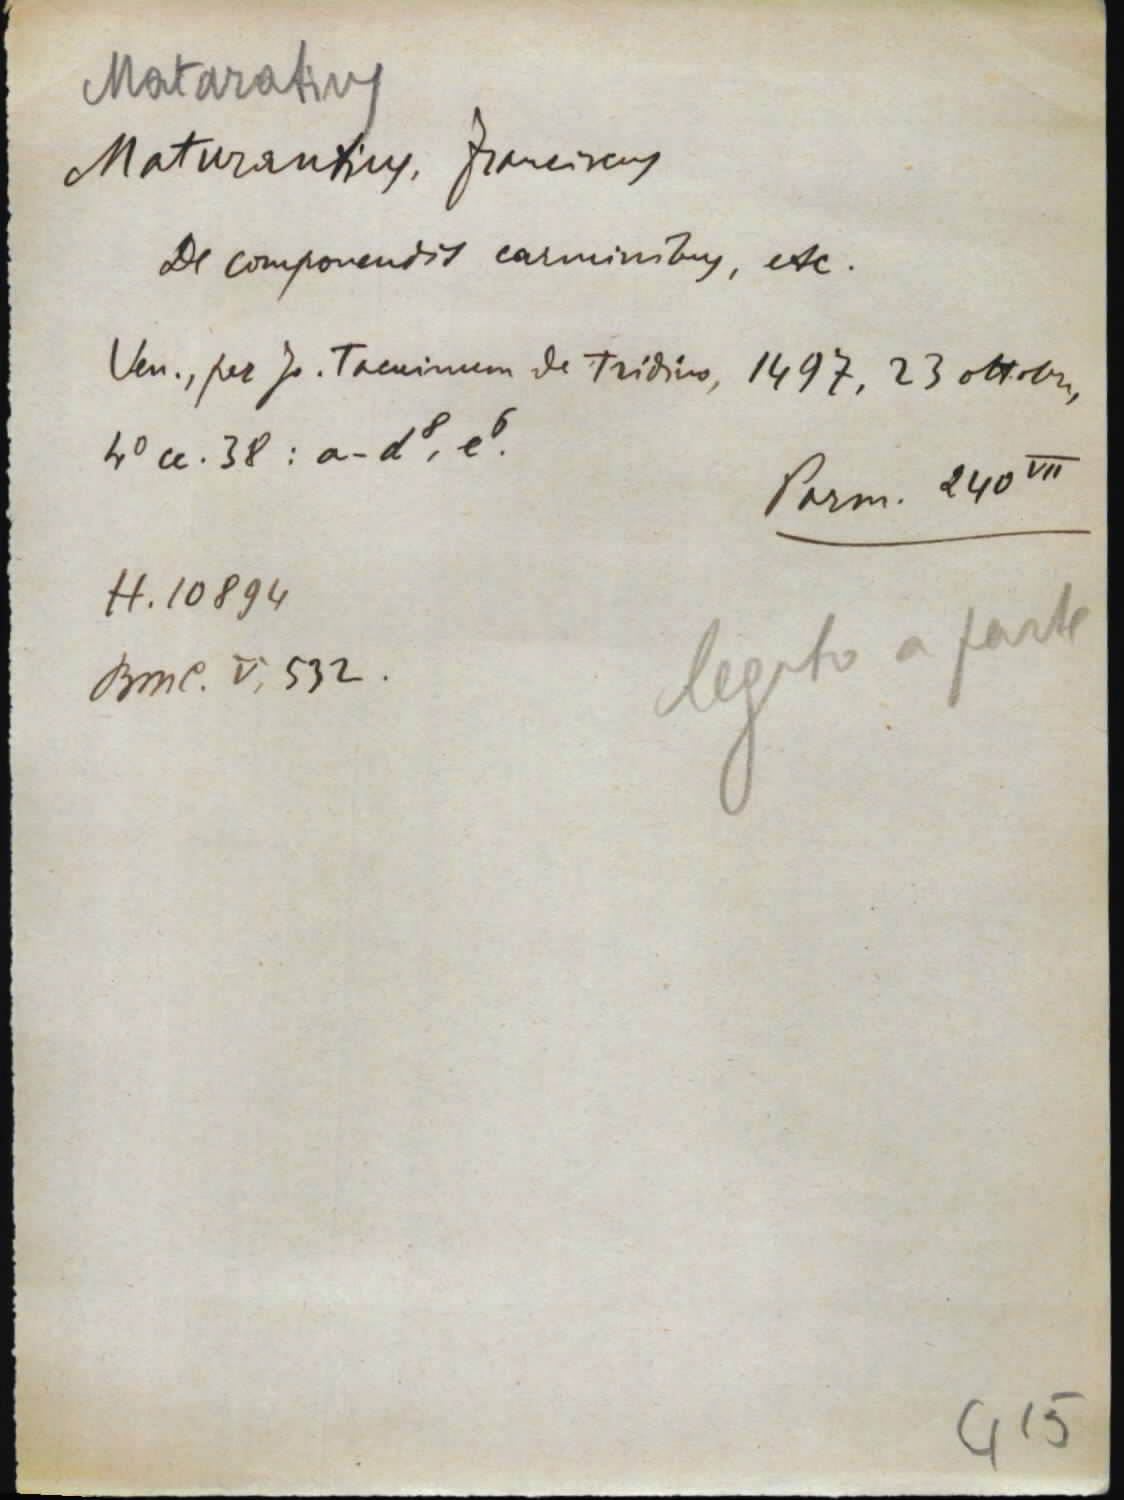 Mataratius
Maturantius, Franciscus
De componendis carminibus, etc.
Ven., per Jo. Tacuinum de Tridino, 1497, 23 ottobre,
4° cc. 38 : a-d⁸, e⁶.
Parm. 240 VII
H. 10894
BMC. V, 532.
legato a parte
G 15